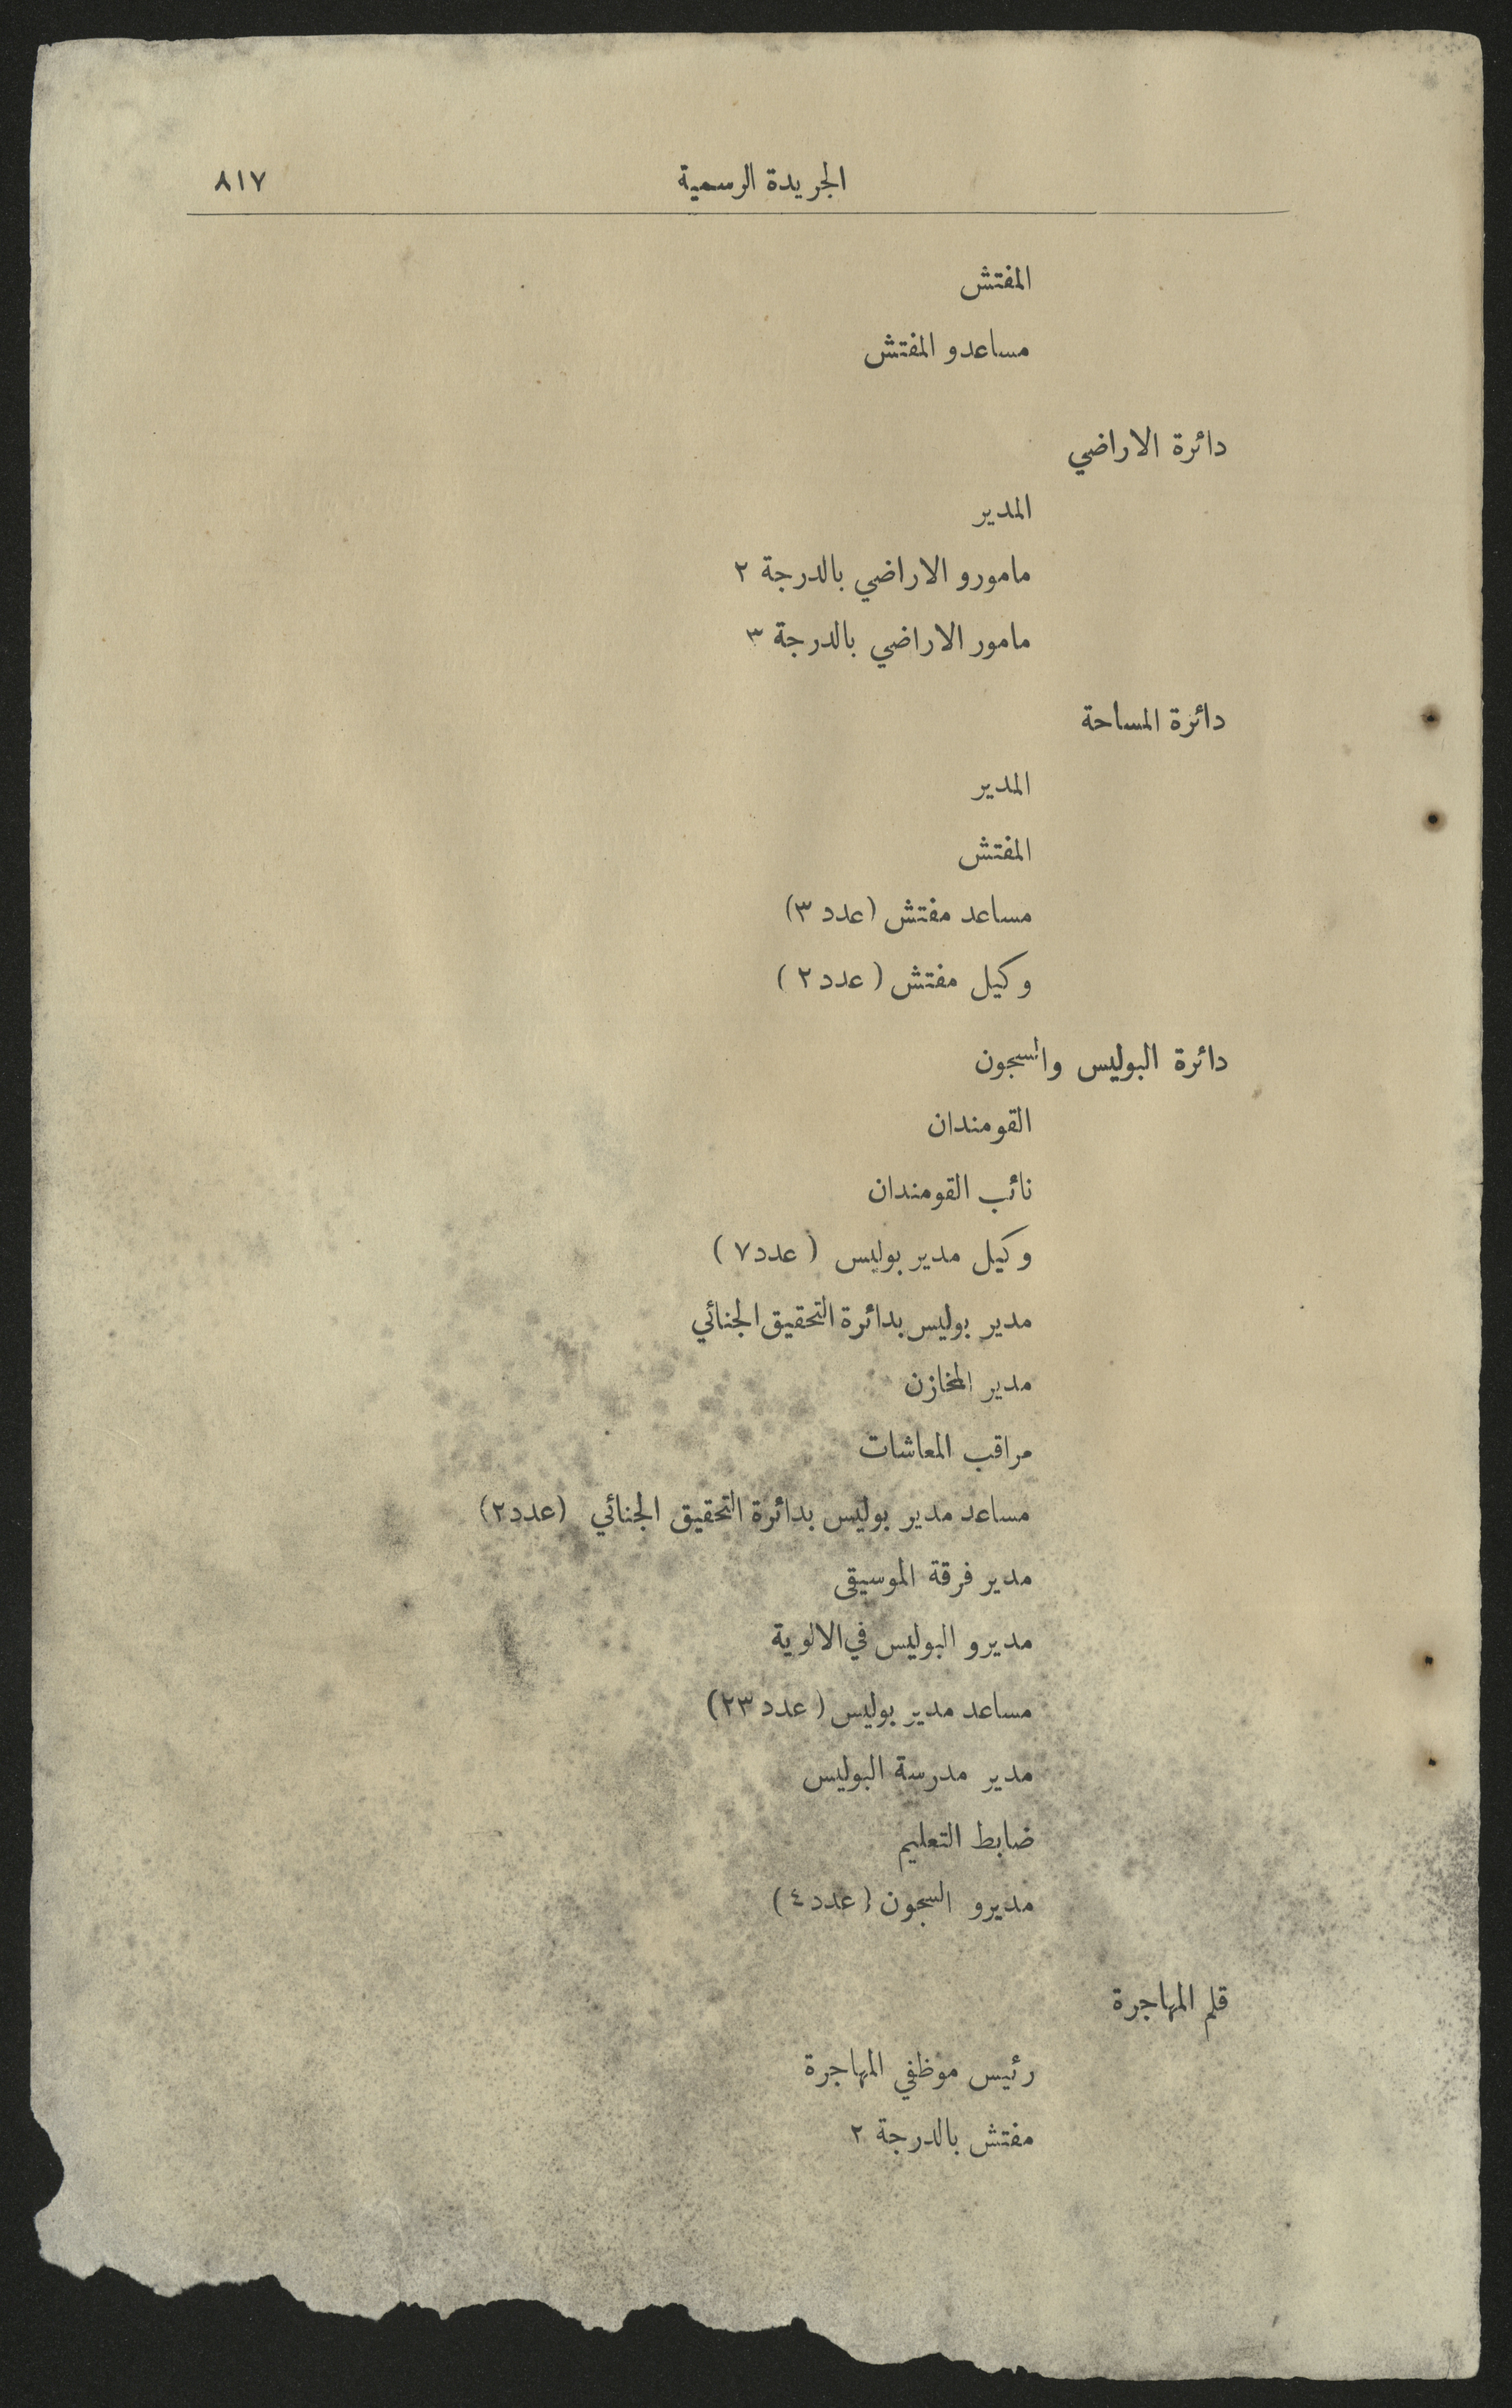 الجريدة الرسمية ٨١٧
المفتش
مساعدو المفتش
دائرة الاراضي
المدير
مامورو الاراضي بالدرجة ٢
مامور الاراضي بالدرجة ٣
دائرة المساحة
المدير
المفتش
مساعد مفتش (عدد ٣)
وكيل مفتش (عدد ٢)
دائرة البوليس والسجون
القومندان
نائب القومندان
وكيل مدير بوليس (عدد ٧)
مدير بوليس بدائرة التحقيق الجنائي
مدير المخازن
مراقب المعاشات
مساعد مدير بوليس بدائرة التحقيق الجنائي (عدد ٢)
مدير فرقة الموسيقى
مديرو البوليس في الالوية
مساعد مدير بوليس (عدد ٢٣)
مدير مدرسة البوليس
ضابط التعليم
مديرو السجون (عدد ٤)
قلم المهاجرة
رئيس موظفي المهاجرة
مفتش بالدرجة ٢